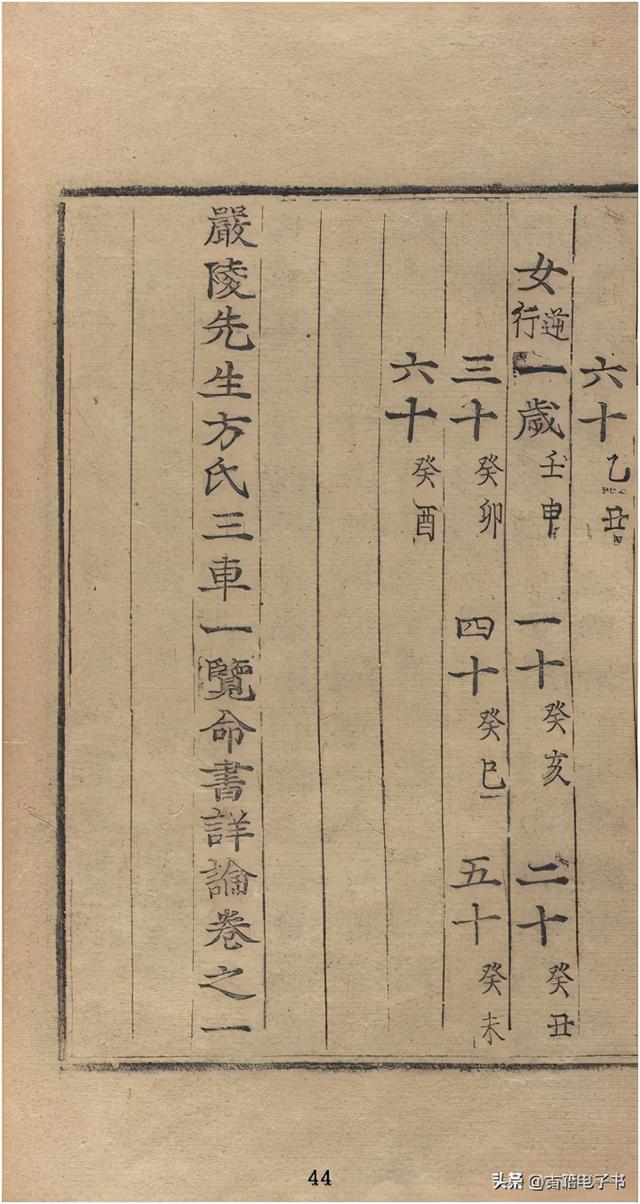 六十乙丑
女逆行一歲壬申 一十癸亥 二十癸丑
三十癸卯 四十癸巳 五十癸未
六十癸酉
嚴陵先生方氏三車一覽命書詳論卷之一
44
头条 @有临电子书